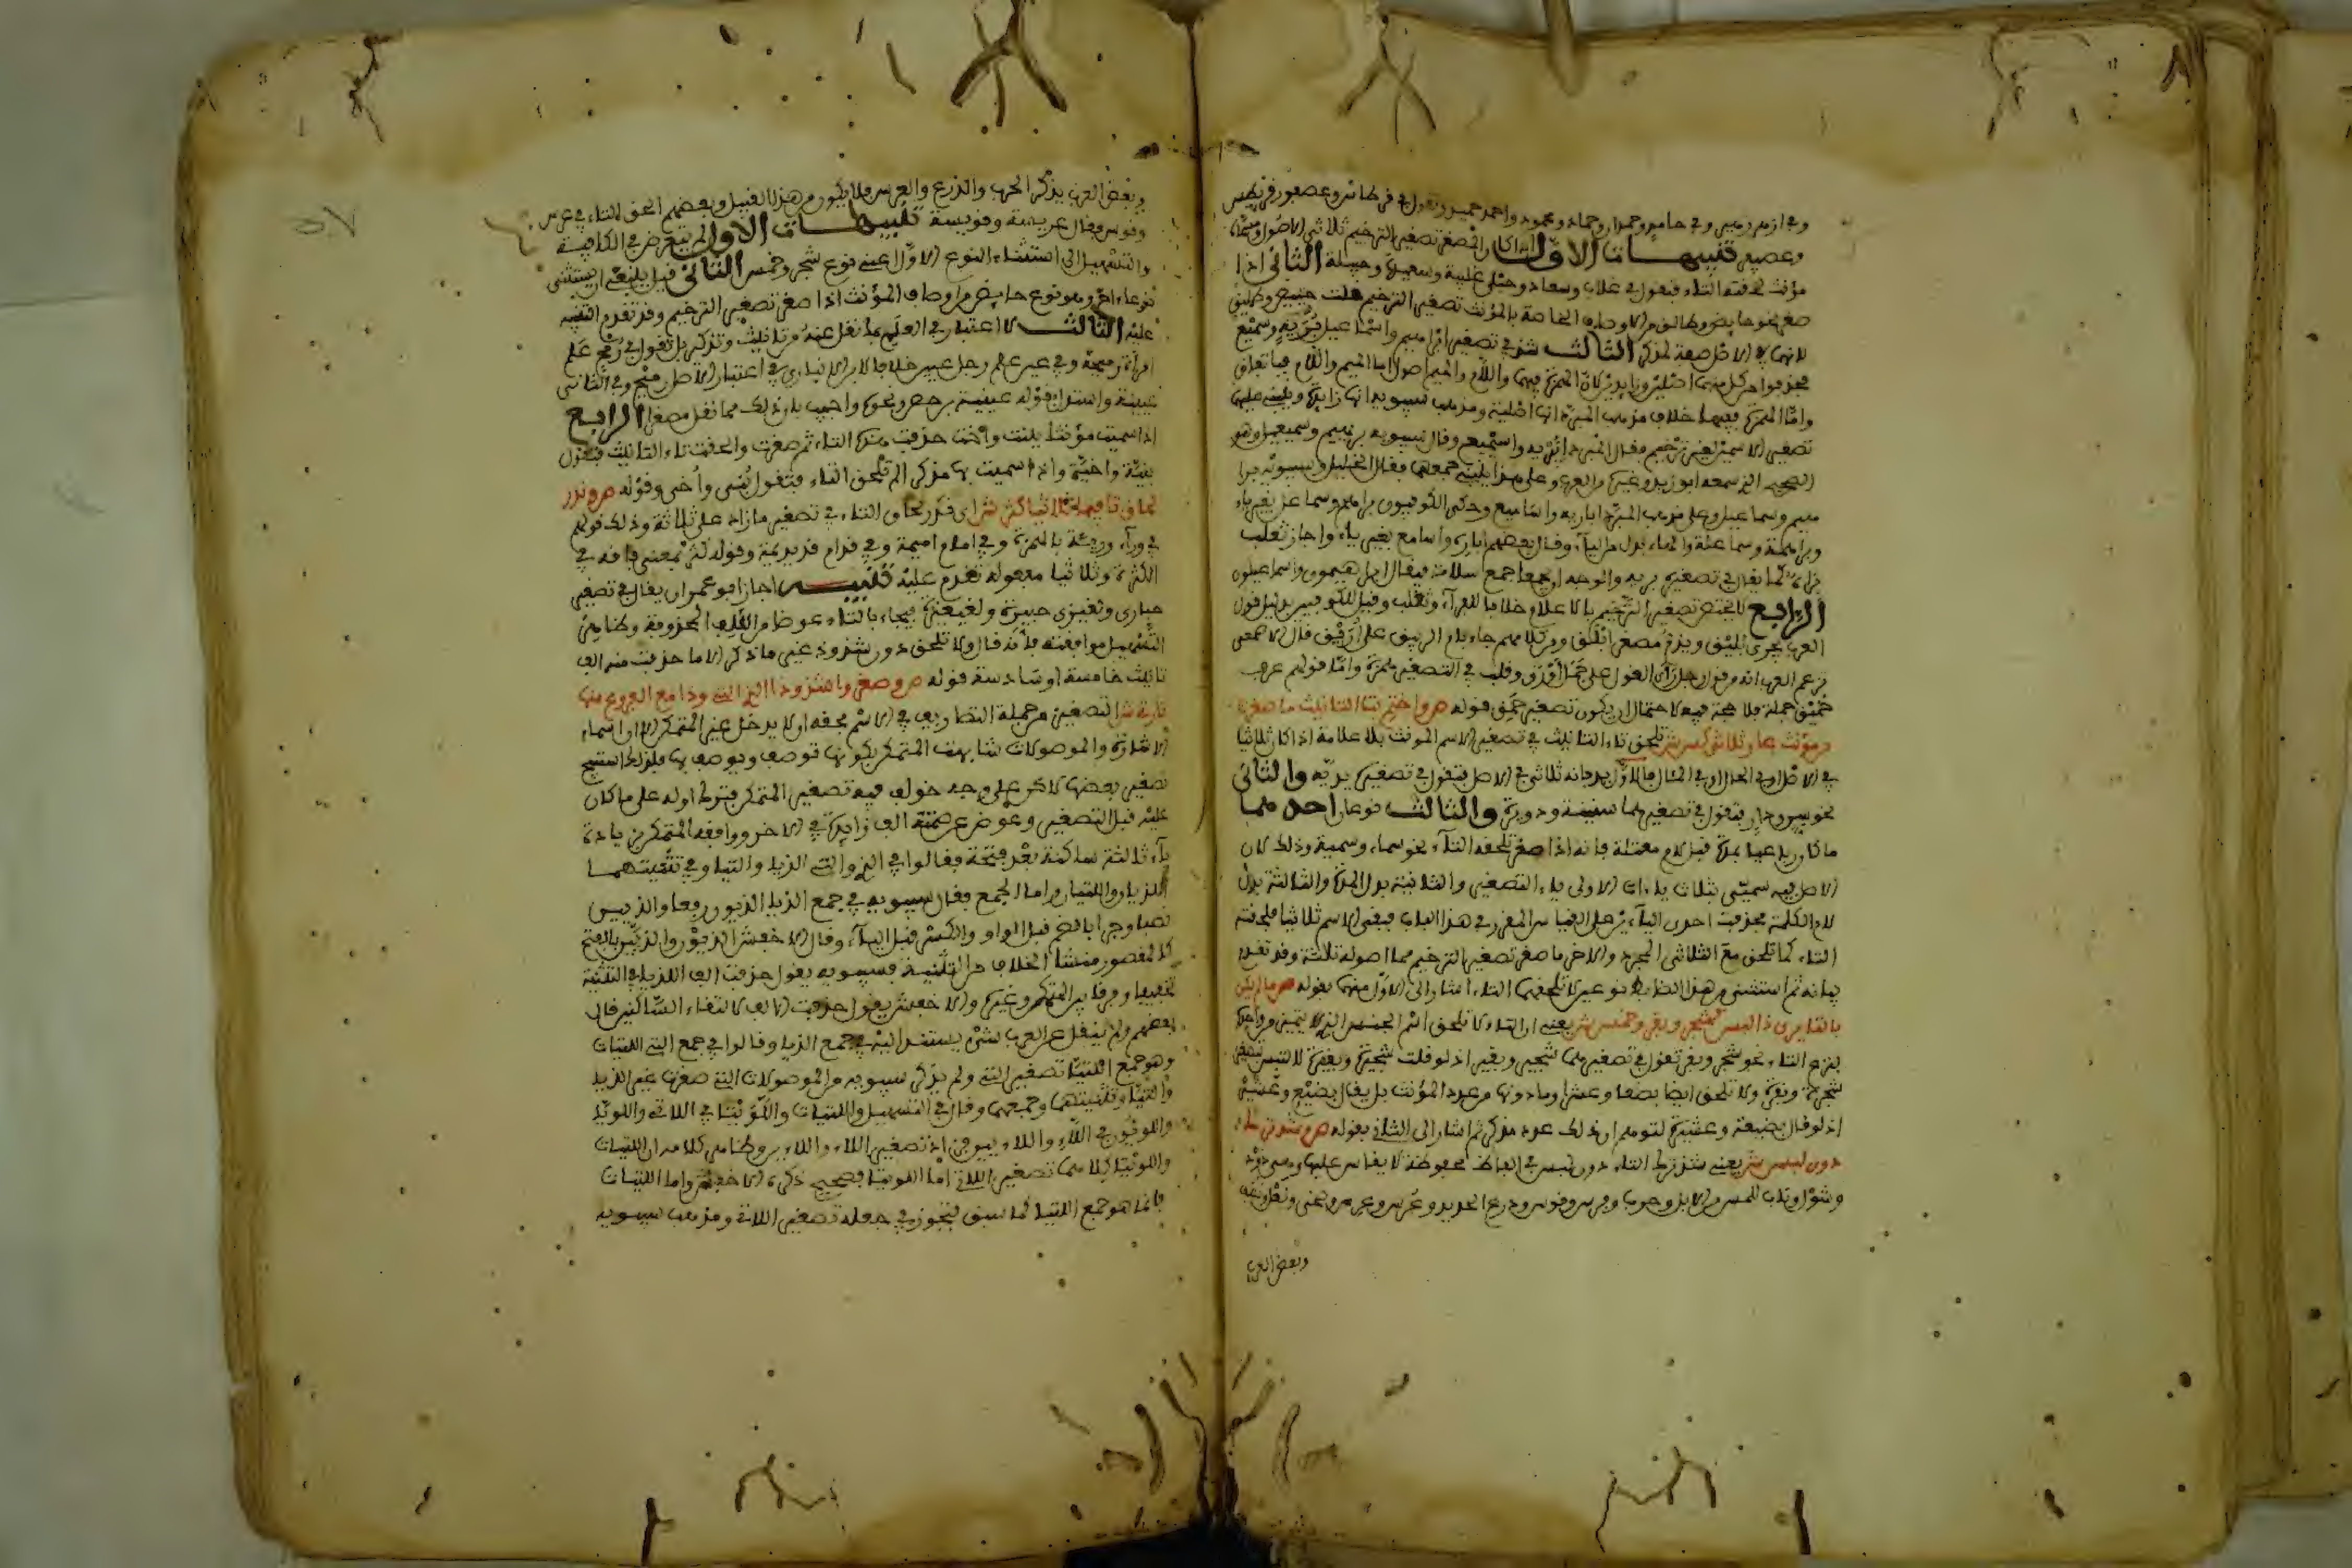 وفي ازهر زهير وفي حامد وحمدان وحماد ومحمود واحمد حميد وتقول في قرطاس وعصفور قريطس
وعصيفر تنبيهات الاول اذا كان المصغر تصغير الترخيم ثلاثي الاصول ومسماه
مؤنث لحقته التاء فتقول في غلاب وسعاد وحبلى غليبة وسعيدة وحبيلة الثاني اذا
صغر نحو حايض وطالق من الاوصاف الخاصة بالمؤنث تصغير الترخيم قلت حييض وطليق
لانها في الاصل صفة لمذكر الثالث شذ في تصغير ابراهيم واسماعيل بريه وسميع
فحذفوا من كل منهما اصلين وزايدين لان الهمزة فيهما واللام والميم اصول اما الميم واللام فباتفاق
واما الهمزة ففيها خلاف مذهب المبرد انها اصلية ومذهب سيبويه انها زايدة وينبني عليهما
تصغير الاسمين لغير ترخيم فقال المبرد ابيريه واسيميع وقال سيبويه بريهيم وسميعيل وهو
الصحيح الذي سمعه ابو زيد وغيره من العرب وعلى هذا ينبني جمعهما فقال الخليل وسيبويه برا
هيم وسماعيل وعلى مذهب المبرد اباريه واساميع وحكى الكوفيون براهم وسماعل بغير ياء
وبراهمة وسماعلة والهاء بدل من الياء وقال بعضهم اباره واسامع بغير ياء واجاز ثعلب
براه كما يقال في تصغيره بريه والوجه ان يجمعا جمع سلامة فيقال ابراهيمون واسماعيلون
الرابع لا يختص تصغير الترخيم بالاعلام خلافا للفراء وثعلب وقيل للكوفيين بدليل قول
العرب يجري بليق ويذم مصغر ابلق ومن كلامهم جاء بام الربيق على اريق قال الاصمعي
تزعم العرب انه من قول رجل راى الغول على جمل اورق وقلب في التصغير همزة واما قولهم عرف
حميق جمله فلا حجة فيه لاحتمال ان يكون تصغير حمق قوله ص واختم بتا التانيث ما صغرت
من مؤنث عار ثلاثي كسن ش تلحق تاء التانيث في تصغير الاسم المونث بلا علامة اذا كان ثلاثيا
في الاصل او في الحال او في المئال فالاول يد فانه ثلاثي في الاصل فتقول في تصغيره يدية والثاني
نحو سن ودار فتقول في تصغيرهما سنينة ودويرة والثالث نوعان احدهما
ما كان رباعيا بمدة قبل لام معتلة فانه اذا صغر تلحقه التاء نحو سماء وسمية وذلك لان
الاصل فيه سميي بثلاث ياءات الاولى ياء التصغير والثانية بدل المدة والثالثة بدل
لام الكلمة فحذفت احدى الياءين على القياس المقرر في هذا الباب فبقي الاسم ثلاثيا فلحقته
التاء كما تلحق مع الثلاثي المجرد والاخر ما صغر تصغير الترخيم مما اصوله ثلاثة وقد تقدم
بيانه ثم استثنى من هذا الضابط نوعين لا تلحقهما التاء اشار الى الاول منهما بقوله ص ما لم يكن
بالتا يرى ذا لبس كشجر وبقر وخمس ش يعني ان التاء لا تلحق اسم الجنس الذي لا يتميز من واحده
بنزع التاء نحو شجر وبقر تقول في تصغيرهما شجير وبقير اذ لو قلت شجيرة وبقيرة لالتبس بتصغير
شجرة وبقرة ولا تلحق ايضا بضعا وعشرا وما دونها من عدد المؤنث بل يقال بضيع وعشير
اذ لو قال بضيعة وعشيرة لتوهم ان ذلك عدد مذكر ثم اشار الى الثاني بقوله ص وشذ ترك
دون لبس ش يعني شذ ترك التاء دون لبس في الفاظ محفوظة لا يقاس عليها وهي ذود
وشول وناب للمسن من الابل وحرب وفرس وقوس ودرع الحديد وعرس وعرب ونعل
وبعض العرب
وبعض العرب يذكر الحرب والدرع والعرس فلا يكون من هذا القبيل وبعضهم الحق التاء في عرس
وقوس فقال عريسة وقويسة تنبيهات الاول لم يتعرض في الكافية
والتسهيل الى استثناء النوع الاول اعني نوع شجر وخمس الثاني قيل ينبغي ان يستثنى
نوعا اخر وهو نوع حايض من اوصاف المؤنث اذا صغر تصغير الترخيم وقد تقدم التنبيه
عليه الثالث لا اعتبار في العلم بما نقل عنه من تانيث وتذكير بل تقول في رمح علم
امراة رميحة وفي عين علم رجل عيين خلافا لابن الانباري في اعتبار الاصل رميح وفي الثاني
عيينة واستدل بقوله عيينة بن حصن ونحوه واجيب بان ذلك مما نقل مصغرا الرابع
اذا سميت مؤنثا ببنت واخت حذفت هذه التاء ثم صغرت والحقت تاء التانيث فتقول
بنية واخية واذا سميت بها مذكرا لم تلحق التاء فتقول بني واخي وقوله ص وندر
لحاق تا فيما ثلاثيا كثر ش اي قل لحاق التاء في تصغير ما زاد على ثلاثة وذلك قولهم
في وراء وريئة بالهمزة وفي امام اميمة وفي قدام قديديمة وقوله كثر بمعنى فاقه في
الكثرة وثلاثيا مفعوله تقدم عليه تنبيه اجاز ابو عمرو ان يقال في تصغير
حبارى ولغيزى حبيرة ولغيغيزة فيجاء بالتاء عوضا من الالف المحذوفة وظاهر
التسهيل موافقته فانه قال ولا تلحق دون شذوذ غير ما ذكر الا ما حذفت منه الف
تانيث خامسة او سادسة قوله ص وصغروا شذوذا الذي التي وذا مع الفروع منها
تا وتي ش التصغير من جملة التصاريف في الاسم فحقه ان لا يدخل غير المتمكن الا ان اسماء
الاشارة والموصولات شابهت المتمكن بكونها توصف ويوصف بها فلذلك استبيح
تصغير بعضها لاكن على وجه خولف فيه تصغير المتمكن فترك اوله على ما كان
عليه قبل التصغير وعوض عن ضمه الف زايدة في الاخر ووافقه المتمكن في زيادة
ياء ثالثة ساكنة بعد فتحة فقالوا في الذي والتي الذيا والتيا وفي تثنيتهما
اللذيان واللتيان واما الجمع فقال سيبويه في جمع الذيا الذيون رفعا والذيين
نصبا وجرا بالضم قبل الواو والكسر قبل الياء وقال الاخفش الذيون والذيين بالفتح
كالمقصور منشا الخلاف من التثنية فسيبويه يقول حذفت الف اللذيا في التثنية
تخفيفا وفرقا بين المتمكن وغيره والاخفش يقول حذفت الالف لالتقاء الساكنين قال
بعضهم ولم ينقل عن العرب شيء يستند اليه في جمع الذيا وقالوا في جمع التي اللتيات
وهو جمع اللتيا تصغير التي ولم يذكر سيبويه من الموصولات التي صغرت غير الذيا
والتيا وتثنيتهما وجمعهما وقال في التسهيل واللتيات واللويتا في اللاتي واللويا
واللويون في اللاء واللاءين فزاد تصغير اللاء واللاءين وظاهر كلامه ان اللتيات
واللويتا كلاهما تصغير اللاتي اما اللويتا فصحيح ذكره الاخفش واما اللتيات
فانما هو جمع اللتيا كما سبق فتجوز في جعله تصغير اللاتي ومذهب سيبويه